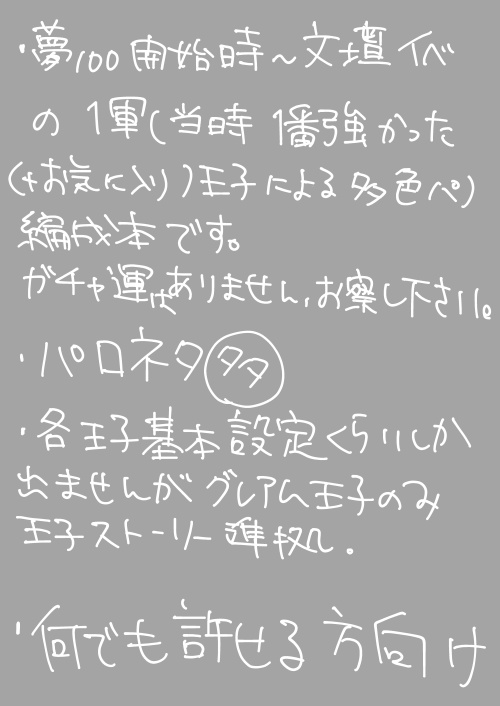 ・夢100開始時～文壇イベ
の1軍(当時1番強かった
(+お気に入り)王子による多色ペ)
編成本です。
ガチャ運はありません、お察し下さい。
・パロネタタタ
・各王子基本設定くらいしか
出ませんがグレアム王子のみ
王子ストーリー準拠。
・何でも許せる方向け